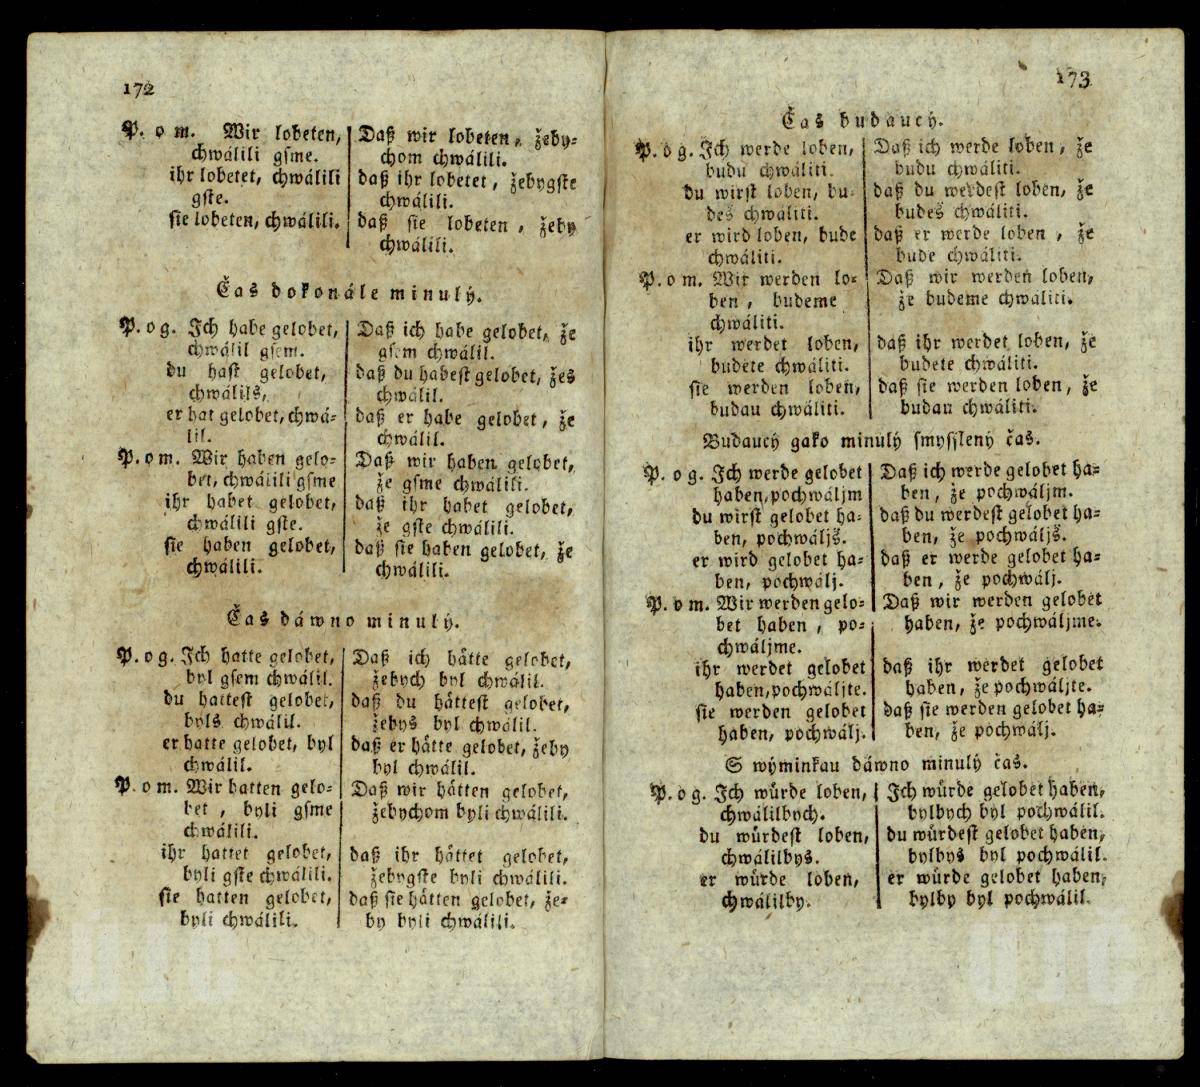 172
P. o m. Wir lobeten,
chwálili gſme.
ihr lobetet, chwálili
gſte.
ſie lobeten, chwálili.
Daß wir lobeten, žeby=
chom chwálili.
daß ihr lobetet, žebygſte
chwálili.
daß ſie lobeten, žeby
chwálili.
Čas dokonále minulý.
P. o g. Ich habe gelobet,
chwálil gſem.
du haſt gelobet,
chwálils,
er hat gelobet, chwá=
lil.
P. o m. Wir haben gelo=
bet, chwálili gſme
ihr habet gelobet,
chwálili gſte.
ſie haben gelobet,
chwálili.
Daß ich habe gelobet, že
gſem chwálil.
daß du habeſt gelobet, žes
chwálil.
daß er habe gelobet, že
chwálil.
Daß wir haben gelobet,
že gſme chwálili.
daß ihr habet gelobet,
že gſte chwálili.
daß ſie haben gelobet, že
chwálili.
Čas dáwno minulý.
P. o g. Ich hatte gelobet,
byl gſem chwálil.
du hatteſt gelobet,
byls chwálil.
er hatte gelobet, byl
chwálil.
P. o m. Wir hatten gelo=
bet, byli gſme
chwálili.
ihr hattet gelobet,
byli gſte chwálili.
ſie hatten gelobet,
byli chwálili.
Daß ich hätte gelobet,
žebych byl chwálil.
daß du hätteſt gelobet,
žebys byl chwálil.
daß er hätte gelobet, žeby
byl chwálil.
Daß wir hätten gelobet,
žebychom byli chwálili.
daß ihr hättet gelobet,
žebygſte byli chwálili.
daß ſie hätten gelobet, že=
by byli chwálili.
173
Čas budaucý.
P. o g. Ich werde loben,
budu chwáliti.
du wirſt loben, bu=
deš chwáliti.
er wird loben, bude
chwáliti.
P. o m. Wir werden lo=
ben, budeme
chwáliti.
ihr werdet loben,
budete chwáliti.
ſie werden loben,
budau chwáliti.
Daß ich werde loben, že
budu chwáliti.
daß du werdeſt loben, že
budeš chwáliti.
daß er werde loben, že
bude chwáliti.
Daß wir werden loben,
že budeme chwáliti.
daß ihr werdet loben, že
budete chwáliti.
daß ſie werden loben, že
budau chwáliti.
Budaucý gako minulý ſmyſſlený čas.
P. o g. Ich werde gelobet
haben, pochwáljm
du wirſt gelobet ha=
ben, pochwáljš.
er wird gelobet ha=
ben, pochwálj.
P. o m. Wir werden gelo=
bet haben, po=
chwáljme.
ihr werdet gelobet
haben, pochwáljte.
ſie werden gelobet
haben, pochwálj.
Daß ich werde gelobet ha=
ben, že pochwáljm.
daß du werdeſt gelobet ha=
ben, že pochwáljš.
daß er werde gelobet ha=
ben, že pochwálj.
Daß wir werden gelobet
haben, že pochwáljme.
daß ihr werdet gelobet
haben, že pochwáljte.
daß ſie werden gelobet ha=
ben, že pochwálj.
S wýminkau dáwno minulý čas.
P. o g. Ich würde loben,
chwálilbych.
du würdeſt loben,
chwálilbys.
er würde loben,
chwálilby.
Ich würde gelobet haben,
bylbych byl pochwálil.
du würdeſt gelobet haben,
bylbys byl pochwálil.
er würde gelobet haben,
bylby byl pochwálil.
UJC
UJC